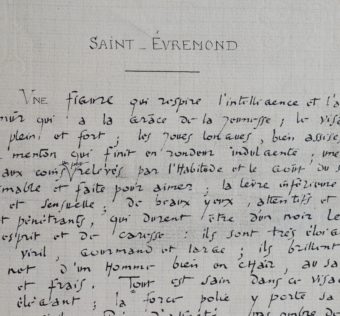 SAINT-ÉVREMOND
UNE figure qui respire l'intelligence et l'a
mûr qui a la grâce de la jeunesse ; le visa
plein et fort ; les joues longues, bien assise
menton qui finit en rondeur indulgente ; une
aux coins relevés par l'habitude et le goût du s
mable et faite pour aimer ; la lèvre inférieure
et sensuelle ; de beaux yeux, attentifs et
t pénétrants, qui durent être d'un noir le
esprit et de caresse : ils sont très éloig
viril, gourmand et large ; ils brillent
net d'un homme bien en chair, au sa
et frais. Tout est sain dans ce visag
élégant ; la force polie y porte sa